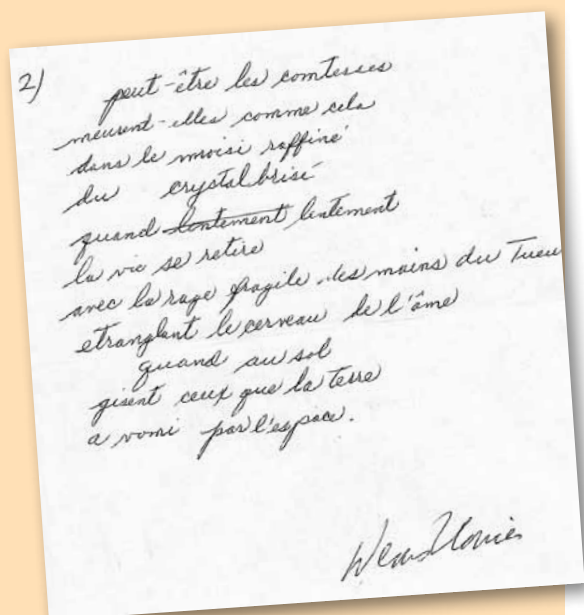 2)
peut-être les comtesses
meurent-elles comme cela
dans le moisi raffiné
du crystal brisé
quand lentement lentement
la vie se retire
avec la rage fragile des mains du Tueu
etranglant le cerveau de l'âme
quand au sol
gisent ceux que la terre
a vomi par l'espace.